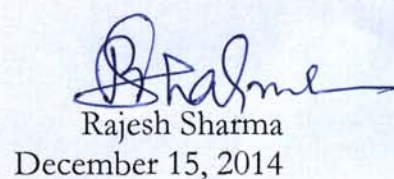 RSharma
Rajesh Sharma
December 15, 2014